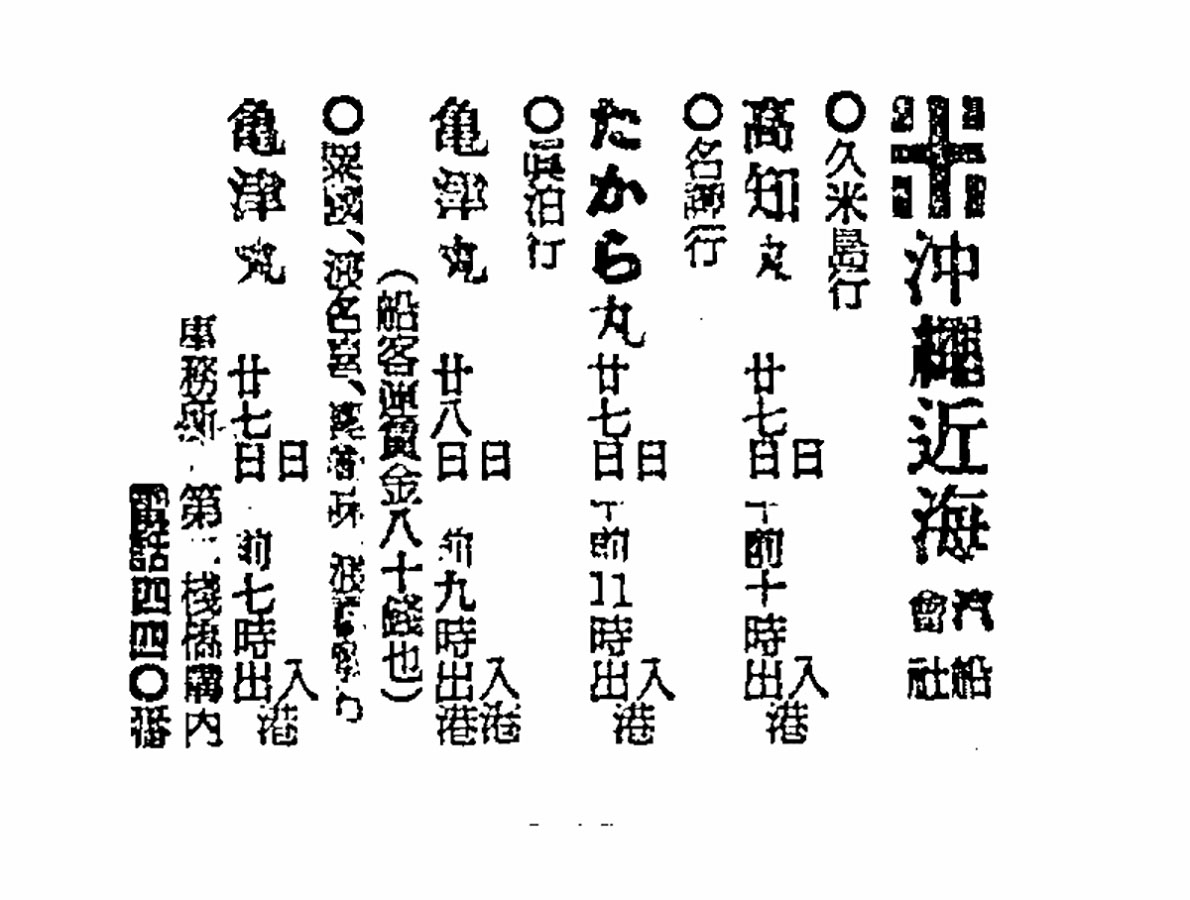 沖繩近海汽船會社
○久米島行
高知丸 廿七日 日 午前十時出 入港
○名護行
たから丸 廿七日 日 午前11時出 入港
○眞泊行
亀津丸 廿八日 日 前九時出港 入港
(船客運賃金八十錢也)
○粟國、渡名喜、
亀津丸 廿七日 日 前七時出 入港
事務所 第二棧橋構内
電話四四〇番